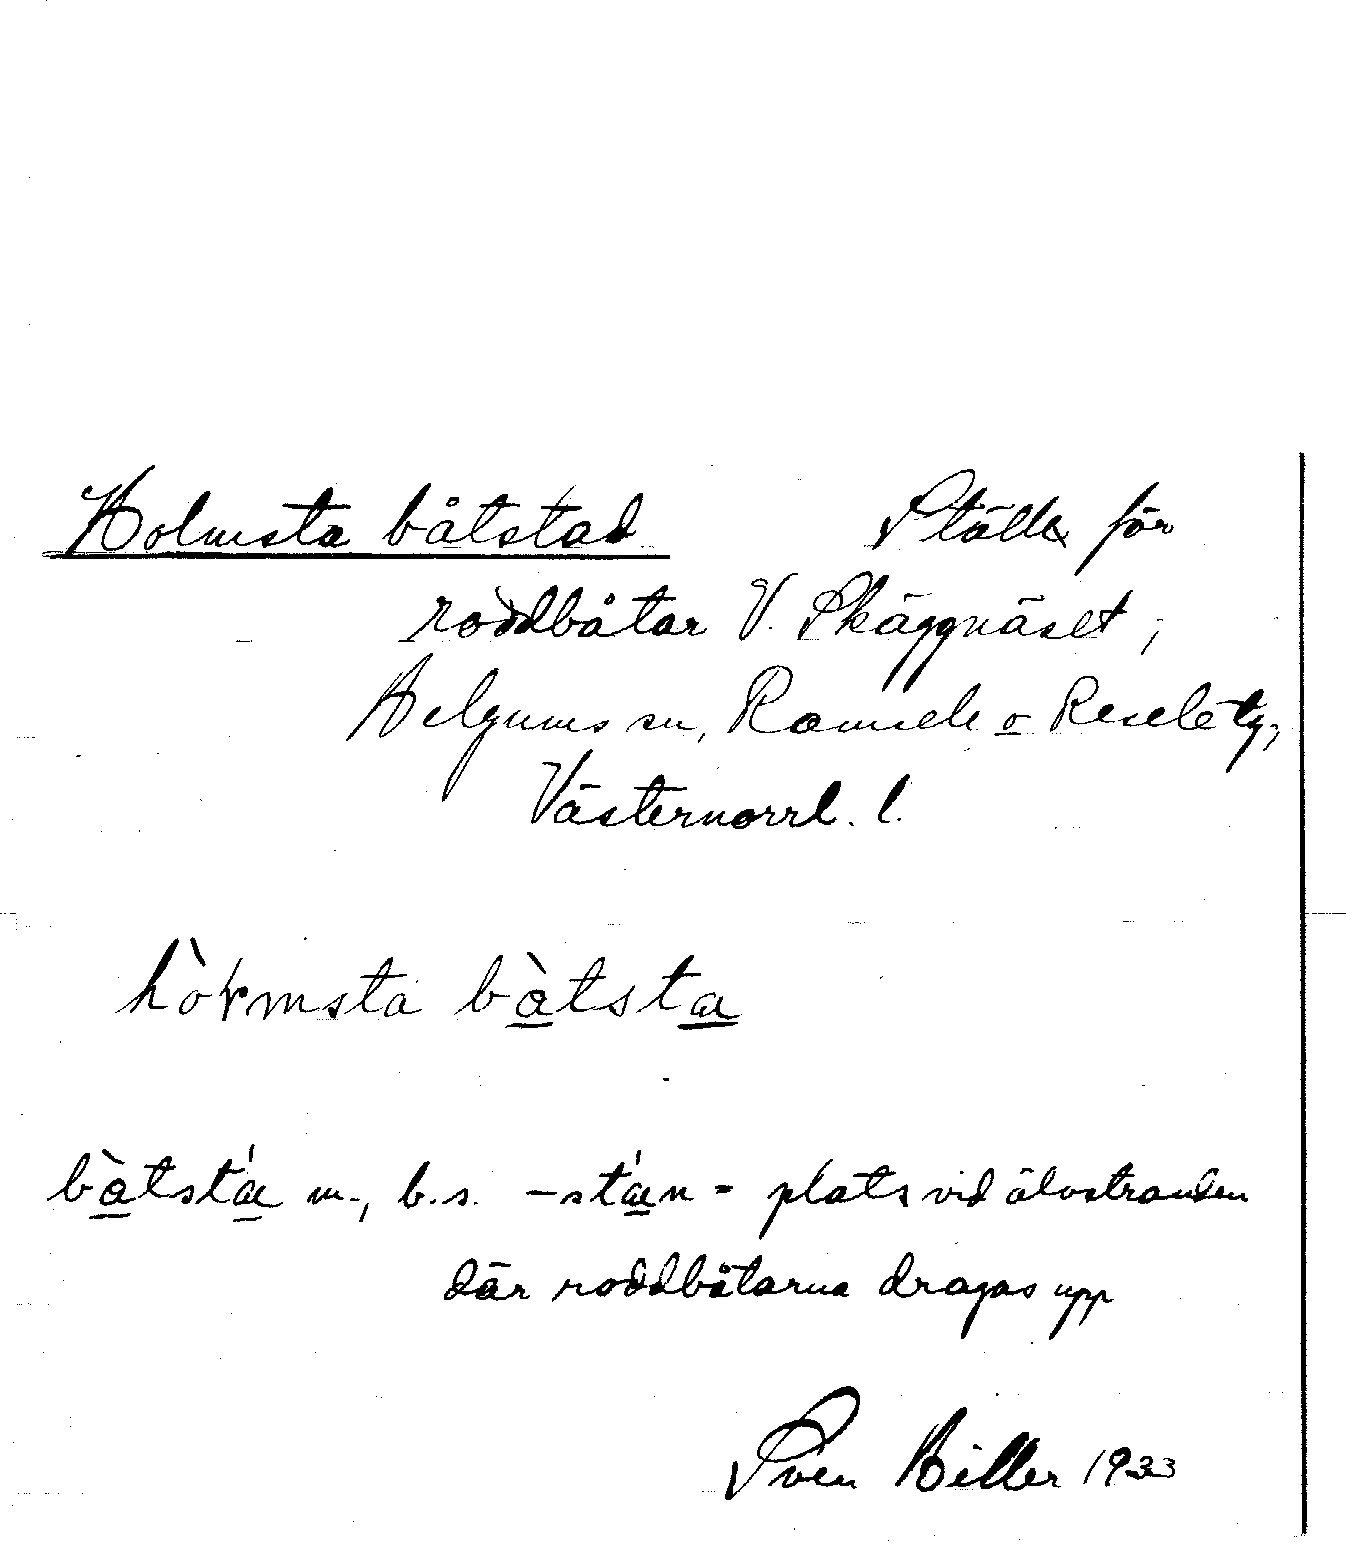 Holmsta båtstad Ställe för
roddbåtar V. Skäggnäset,
Helgums sn, Ramsele o Resele tg,
Västernorrl. l.
hòɽmsta bàtsta
bàtstá m., b.s. -stán = plats vid älvstranden
där roddbåtarna dragas upp
Sven Hiller 1933